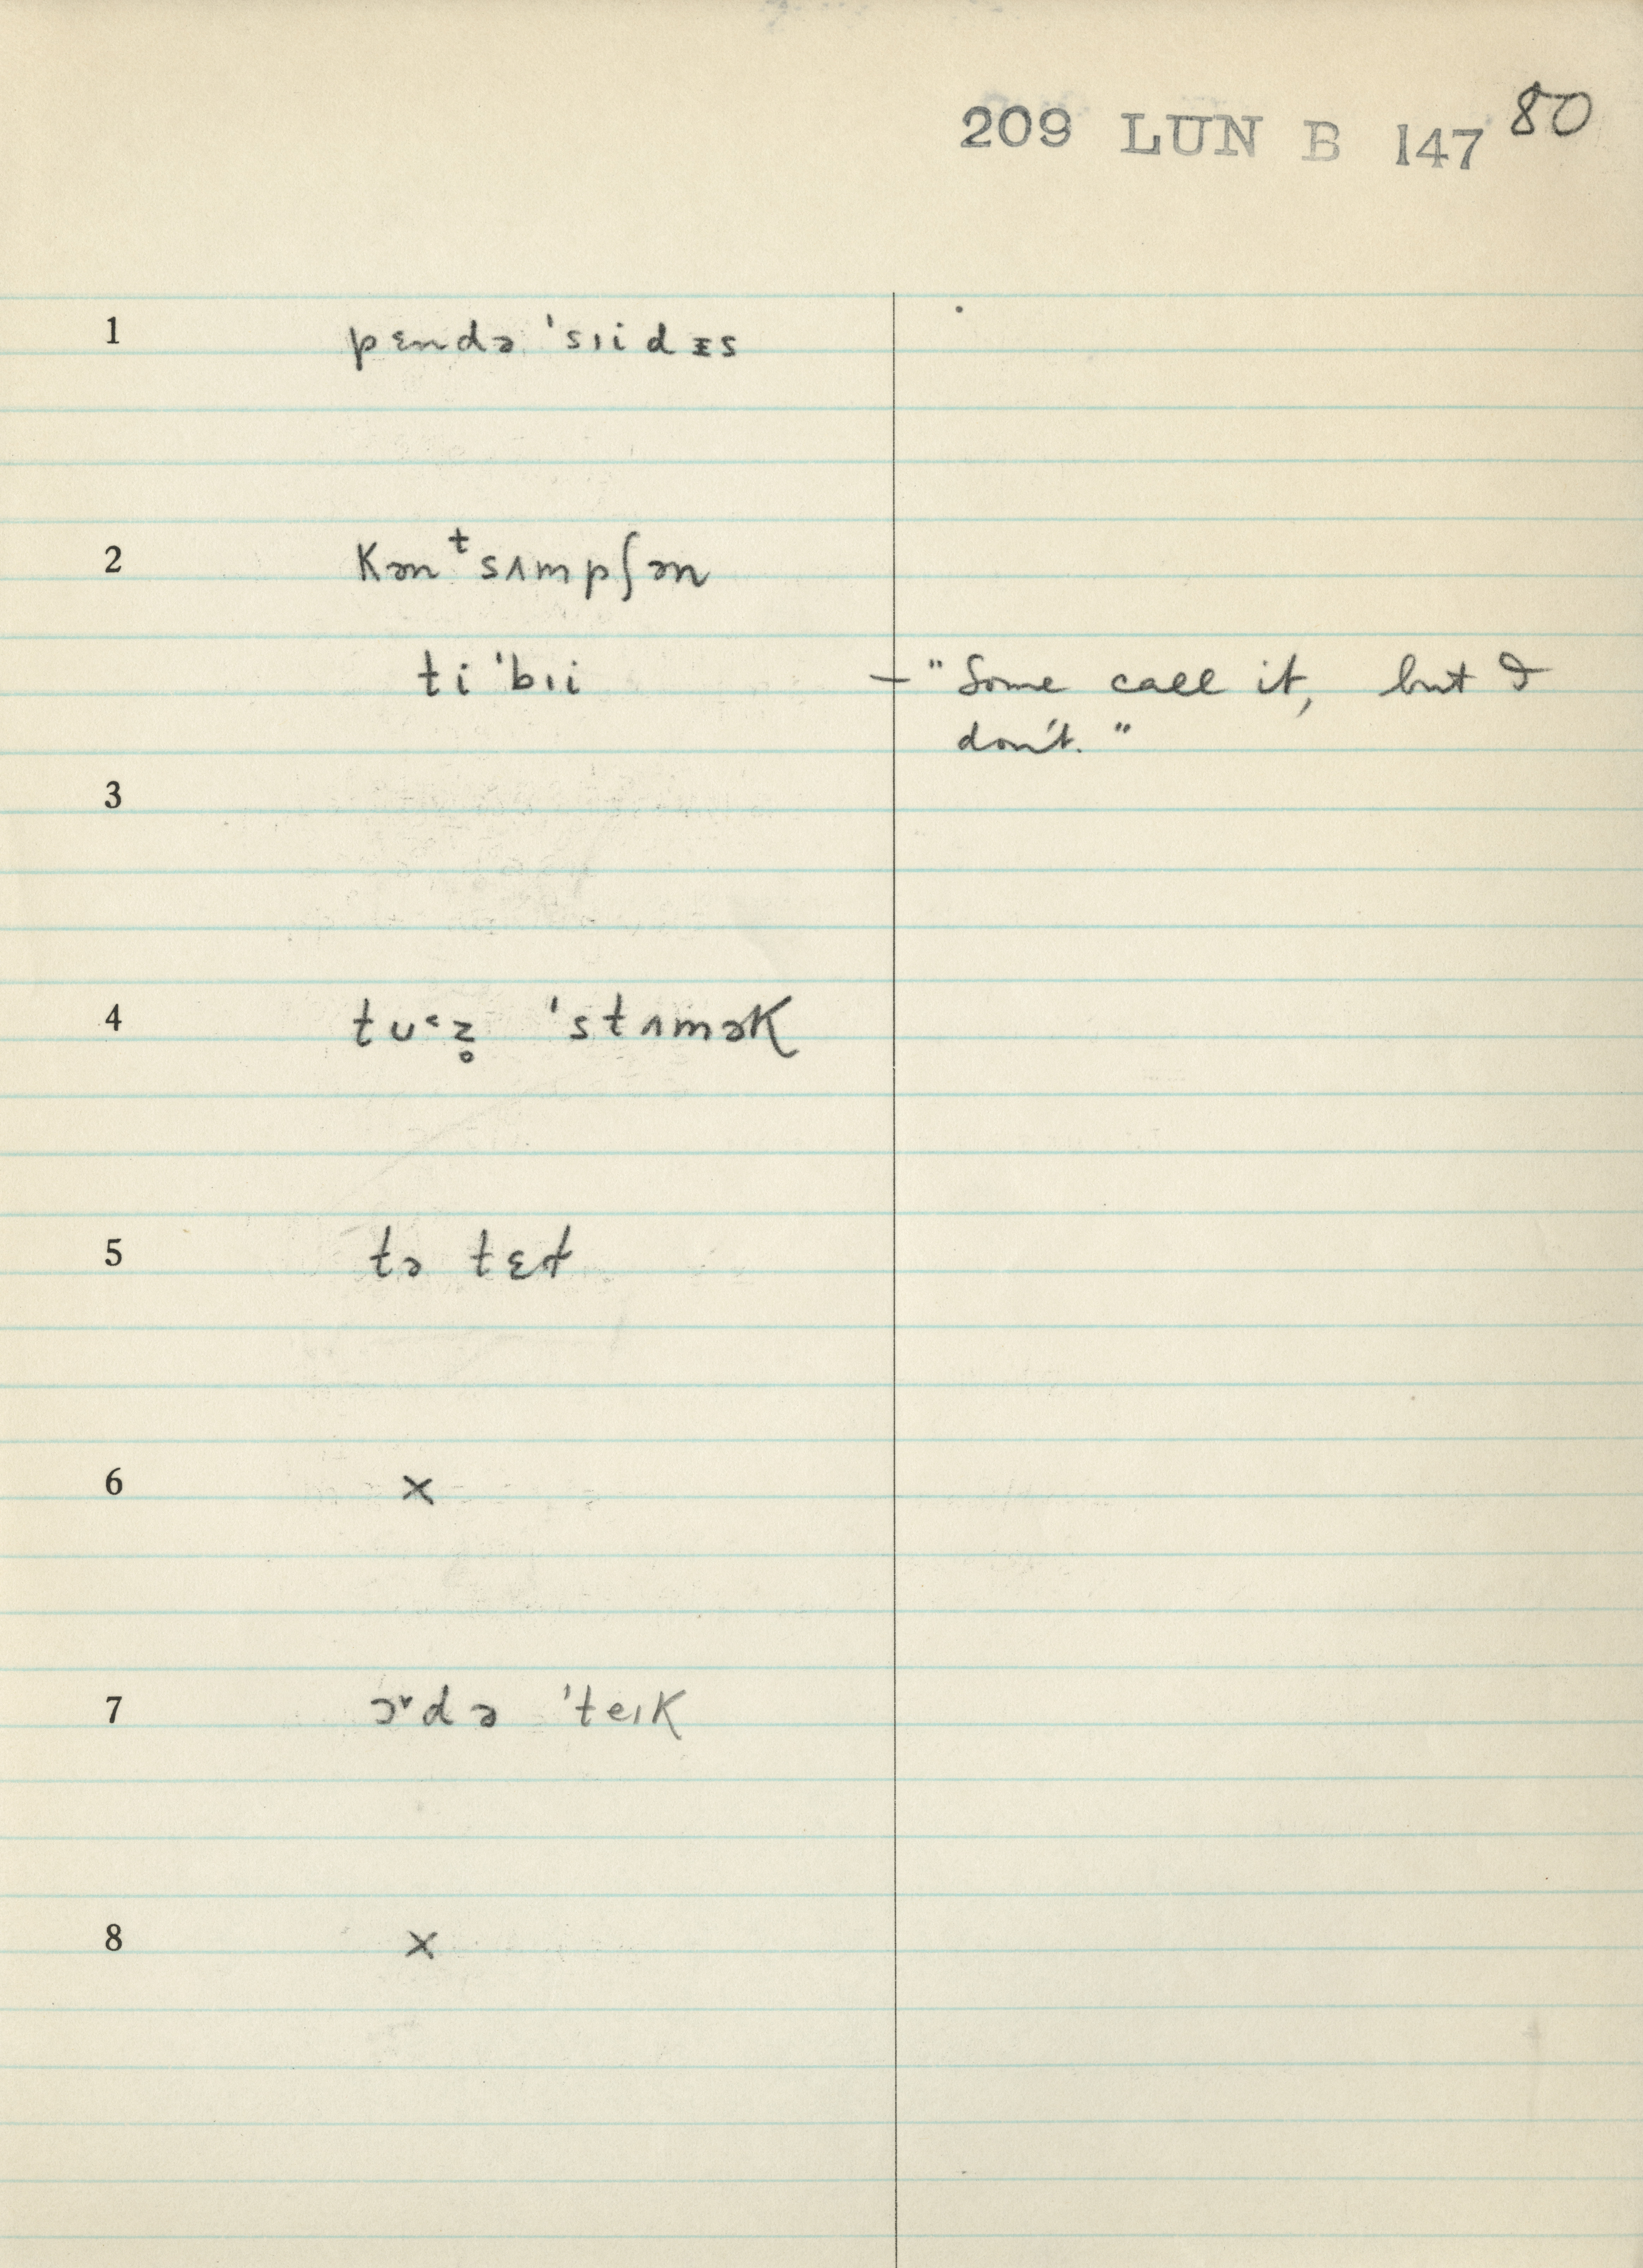 209 LUN B 147 80
1 pɛndə ˈsɪidᵻs
2 kənᵗsʌmpʃən
ti ˈbɪi — "Some call it, but I
don't."
3
4 tu˂z̥ ˈstʌmək
5 tə tɛt
6 x
7 ɔ˅də ˈteɪk
8 x